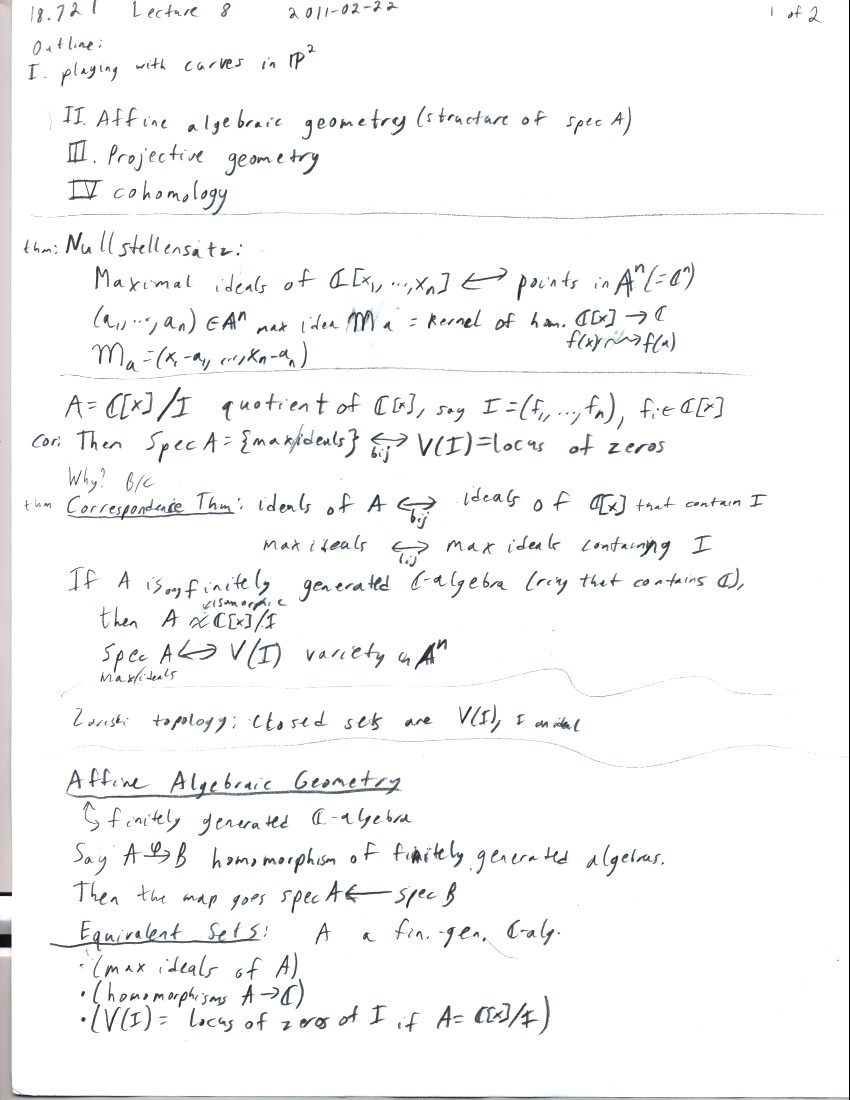 18.721 Lecture 8 2011-02-22 1 of 2
Outline:
I. playing with curves in ℙ²
II. Affine algebraic geometry (structure of spec A)
III. Projective geometry
IV cohomology
thm: Nullstellensatz:
Maximal ideals of ℂ[x₁, ..., xₙ] ↔ points in 𝔸ⁿ(=ℂⁿ)
(a₁, ..., aₙ) ∈ 𝔸ⁿ max idea 𝔪ₐ = kernel of hom. ℂ[x] → ℂ
f(x) ⇝ f(a)
𝔪ₐ = (x₁-a₁, ..., xₙ-aₙ)
A = ℂ[x]/I quotient of ℂ[x], say I = (f₁, ..., fₙ), fᵢ ∈ ℂ[x]
Cor: Then Spec A = {max ideals} ↔ V(I) = locus of zeros
bij
Why? B/C
thm Correspondence Thm: ideals of A ↔ ideals of ℂ[x] that contain I
bij
max ideals ↔ max ideals containing I
bij
If A is any finitely generated ℂ-algebra (ring that contains ℂ),
isomorphic
then A ≈ ℂ[x]/I
spec A ↔ V(I) variety in 𝔸ⁿ
max ideals
Zariski topology: closed sets are V(I), I an ideal
Affine Algebraic Geometry
finitely generated ℂ-algebra
Say A →φ B homomorphism of finitely generated algebras.
Then the map goes spec A ← spec B
Equivalent Sets: A a fin.-gen. ℂ-alg.
· (max ideals of A)
· (homomorphisms A → ℂ)
· (V(I) = locus of zeros of I if A = ℂ[x]/I)